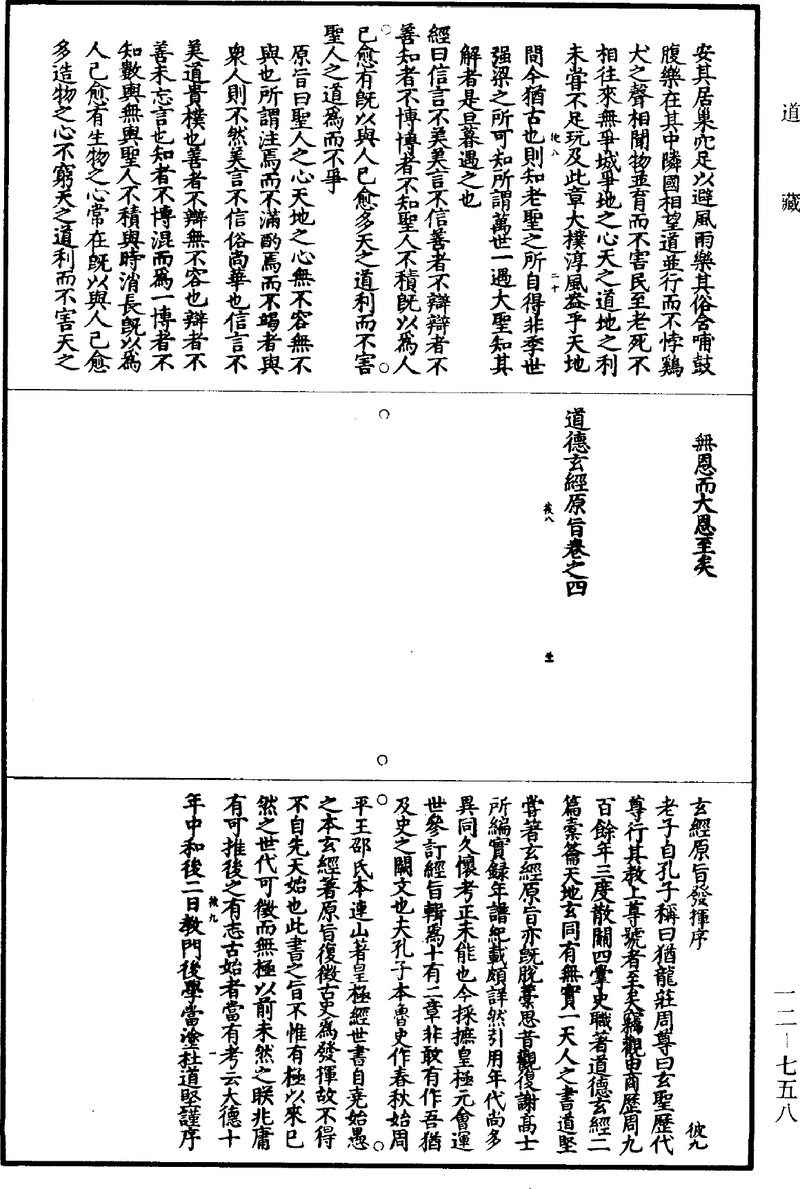 道藏
安其居巢穴足以避風雨樂其俗含哺鼓
腹樂在其中隣國相望道並行而不悖鷄
犬之聲相聞物並育而不害民至老死不
相往來無爭城爭地之心天之道地之利
未甞不足玩及此章大樸淳風盎乎天地
彼八
二十
間今猶古也則知老聖之所自得非季世
强梁之所可知所謂萬世一遇大聖知其
解者是旦暮遇之也
經曰信言不美美言不信善者不辯辯者不
善知者不博博者不知聖人不積既以爲人
己愈有既以與人己愈多天之道利而不害
聖人之道爲而不爭
原旨曰聖人之心天地之心無不容無不
與也所謂注焉而不滿酌焉而不竭者與
衆人則不然美言不信俗尚華也信言不
美道貴樸也善者不辯無不容也辯者不
善未忘言也知者不博混而爲一博者不
知數與無與聖人不積與時消長既以爲
人己愈有生物之心常在既以與人己愈
多造物之心不窮天之道利而不害天之
無恩而大恩至矣
道德玄經原旨卷之四
彼八
玄經原旨發揮序
彼九
老子自孔子稱曰猶龍莊周尊曰玄聖歷代
尊行其教上尊號者至矣竊觀由商歷周九
百餘年三度散關四掌史職著道德玄經二
篇槖籥天地玄同有無實一天人之書道堅
甞著玄經原旨亦既脫藁思昔觀復謝高士
所編實録年譜紀載頗詳然引用年代尚多
異同久懷考正未能也今採摭皇極元會運
世參訂經旨輯爲十有二章非敢有作吾猶
及史之闕文也夫孔子本魯史作春秋始周
平王邵氏本連山著皇極經世書自堯始愚
之本玄經著原旨復徵古史爲發揮故不得
不自先天始也此書之旨不惟有極以來已
然之世代可徵而無極以前未然之眹兆庸
有可推後之有志古始者當有考云大德十
彼九
一
年中和後二日教門後學當塗杜道堅謹序
一二—七五八